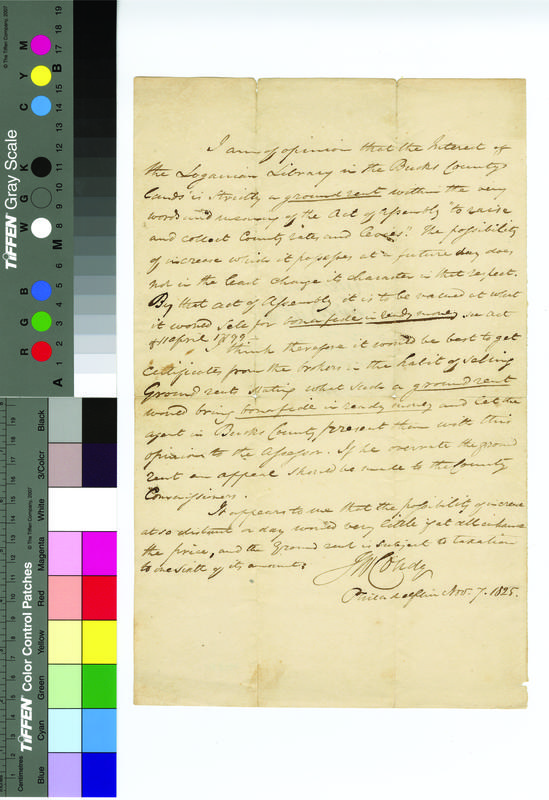 I am of opinion that the Interest of
the Loganian Library in the Bucks County
lands is strictly a ground rent within the very
words and meaning of the Act of Assembly "to raise
and collect County rates and Levies". The possibility
of increase which it possesses at a future day does
not in the least change its character in that respect.
By that act of Assembly it is to be valued at what
it would sell for bonafide in ready money see act
of 11 April 1799
I think therefore it would be best to get
Certificates from the brokers in the habit of selling
Ground rent stating what such a ground rent
would bring bonafide in ready money and let the
agent in Bucks County present them with this
opinion to the Assessor. If he overrate the ground
rent an appeal should be made to the County
Commissioners.
It appears to me that the possibility of increase
at so distant a day would very little if at all enhance
the price, and the Ground rent is subject to taxation
to one sixth of its amount.
Philadelphia Nov. 7. 1825.
TIFFEN Gray Scale
© The Tiffen Company, 2007
R G B W G K C Y M
A 1 2 3 4 5 6 M 8 9 10 11 12 13 14 15 B 17 18 19
TIFFEN Color Control Patches
© The Tiffen Company, 2007
Centimetres
Blue Cyan Green Yellow Red Magenta White 3/Color Black